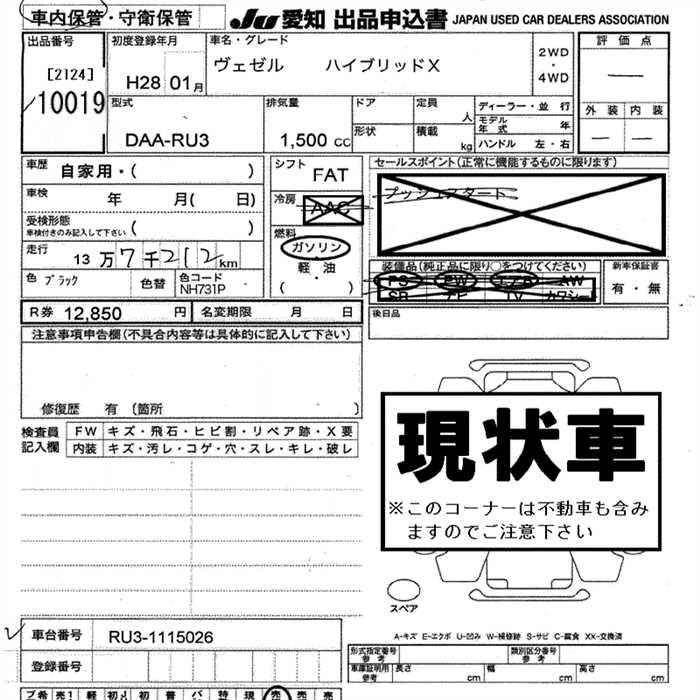 車内保管・守衛保管 JU 愛知 出品申込書 JAPAN USED CAR DEALERS ASSOCIATION
出品番号 初度登録年月 車名・グレード 2WD・4WD 評価点
[2124] H28 01月 ヴェゼル ハイブリッドX
10019 型式 排気量 ドア 定員 人 ディーラー・並 行 外装 内装
モデル年式 年
DAA-RU3 1,500 cc 形状 積載 kg ハンドル 左・右
車歴 自家用・( ) シフト FAT セールスポイント(正常に機能するものに限ります)
車検 年 月( 日) 冷房 AAC プッシュスタート
受検形態 車検付きのみ記入して下さい ( ) 燃料 ガソリン
走行 13万7千212km 軽・油 装備品(純正品に限り○をつけてください) 新車保証書
色 ブラック 色替 色コード NH731P ( ) PS PW エアB AW 有・無
SR ナビ TV カワシート
R券 12,850 円 名変期限 月 日 後日品
注意事項申告欄(不具合内容等は具体的に記入して下さい)
修復歴 有 〔箇所 〕
検査員記入欄 FW キズ・飛石・ヒビ割・リペア跡・X要
内装 キズ・汚レ・コゲ・穴・スレ・キレ・破レ
現状車
※このコーナーは不動車も含み
ますのでご注意下さい
スペア
車台番号 RU3-1115026 A-キズ E-エクボ U-凹み W-補修跡 S-サビ C-腐食 XX-交換済
登録番号 形式指定番号 参考 類別区分番号 参考
車庫証明用 参考 長さ cm 幅 cm 高さ cm